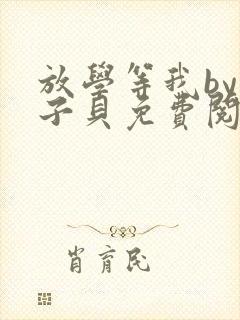 放學等我by
子貝免費閱
肖育民